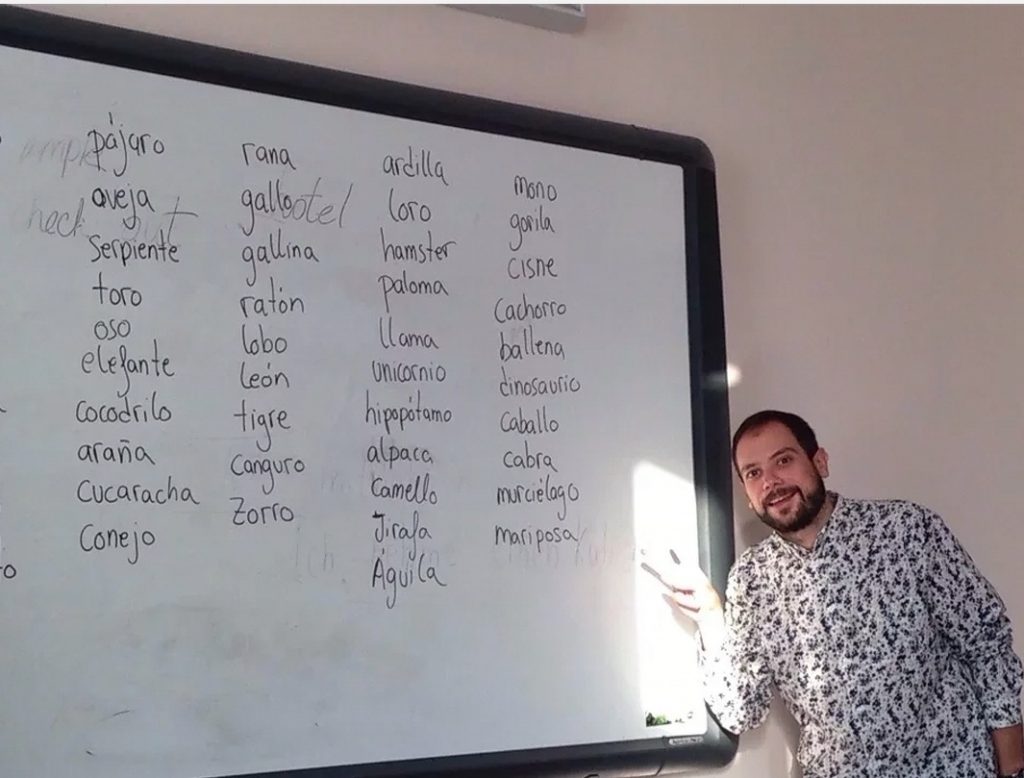 pájaro
aveja
serpiente
toro
oso
elefante
cocodrilo
araña
cucaracha
conejo
rana
gallo
gallina
ratón
lobo
león
tigre
canguro
zorro
ardilla
loro
hamster
paloma
llama
unicornio
hipopótamo
alpaca
camello
Jirafa
Águila
mono
gorila
cisne
cachorro
ballena
dinosaurio
caballo
cabra
murciélago
mariposa